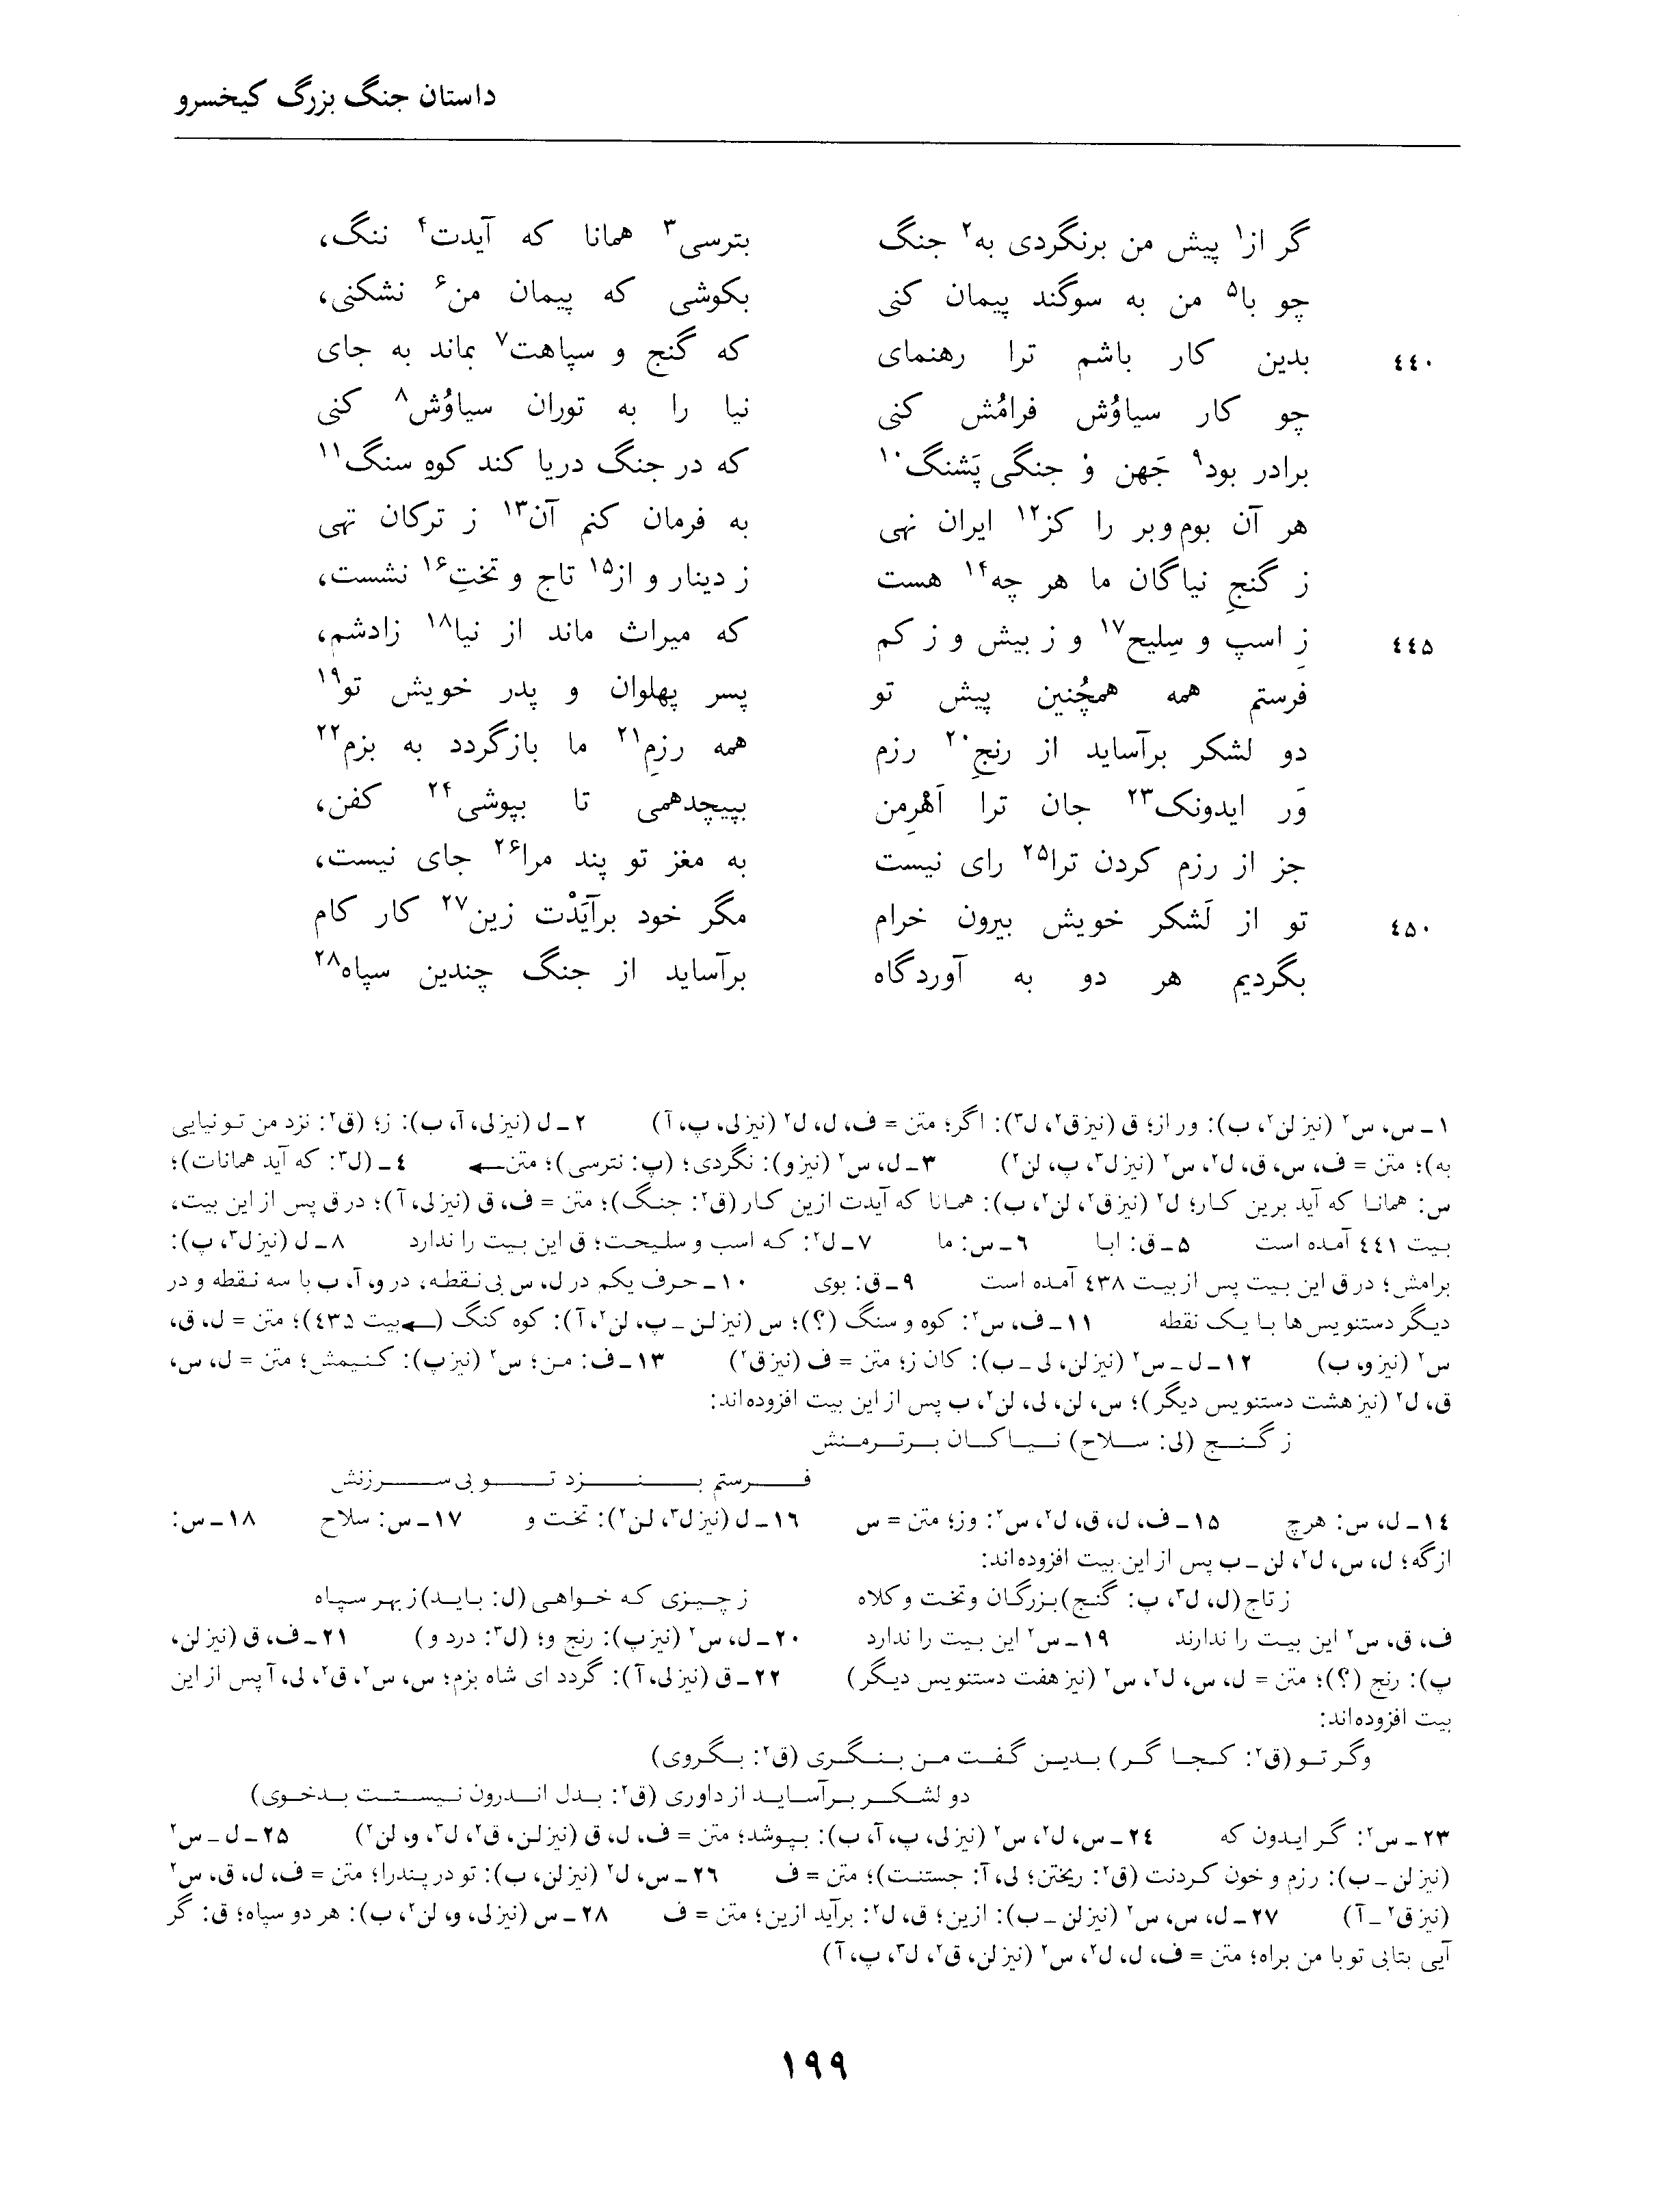 داستان جنگ بزرگ کیخسرو
گر از۱ پیش من برنگردی به۲ جنگ بترسی۳ همانا که آیدت۴ ننگ،
چو با۵ من به سوگند پیمان کنی بکوشی که پیمان من۶ نشکنی،
۴۴۰ بدین کار باشم ترا رهنمای که گنج و سپاهت۷ بماند به جای
چو کار سیاوُش فرامُش کنی نیا را به توران سیاوُش۸ کنی
برادر بود۹ جَهن وُ جنگی پَشنگ۱۰ که در جنگ دریا کند کوهِ سنگ۱۱
هر آن بوم‌وبر را کز۱۲ ایران نهی به فرمان کنم آن۱۳ ز ترکان تهی
ز گنجِ نیاگان ما هر چه۱۴ هست ز دینار و از۱۵ تاج و تختِ۱۶ نشست،
۴۴۵ زِ اسپ و سِلیح۱۷ و ز بیش و ز کم که میراث ماند از نیا۱۸ زادشم،
فرستم همه همچُنین پیش تو پسر پهلوان و پدر خویش تو۱۹
دو لشکر برآساید از رنجِ۲۰ رزم همه رزمِ۲۱ ما بازگردد به بزم۲۲
وَر ایدونک۲۳ جان ترا اَهْرِمن بپیچدهمی تا بپوشی۲۴ کفن،
جز از رزم کردن ترا۲۵ رای نیست به مغز تو پند مرا۲۶ جای نیست،
۴۵۰ تو از لَشکر خویش بیرون خرام مگر خود برآیَدْت زین۲۷ کار کام
بگردیم هر دو به آوردگاه برآساید از جنگ چندین سپاه۲۸
۱ـ س، س۲ (نیز لن۲، ب): ور از؛ ق (نیز ق۲، ل۳): اگر؛ متن = ف، ل، ل۲ (نیز لی، پ، آ) ۲ـ ل (نیز لی، آ، ب): ز؛ (ق۲: نزد من تو نیایی
به)؛ متن = ف، س، ق، ل۲، س۲ (نیز ل۳، پ، لن۲) ۳ـ ل، س۲ (نیز و): نگردی؛ (پ: نترسی)؛ متن← ۴ـ (ل۳: که آید همانات)؛
س: همانا که آید برین کار؛ ل۲ (نیز ق۲، لن۲، ب): همانا که آیدت ازین کار (ق۲: جنگ)؛ متن = ف، ق (نیز لی، آ)؛ در ق پس از این بیت،
بیت ۴۴۱ آمده است ۵ـ ق: ابا ۶ـ س: ما ۷ـ ل۲: که اسب و سلیحت؛ ق این بیت را ندارد ۸ـ ل (نیز ل۳، پ):
برامش؛ در ق این بیت پس از بیت ۴۳۸ آمده است ۹ـ ق: بوی ۱۰ـ حرف یکم در ل، س بی‌نقطه، در و، آ، ب با سه نقطه و در
دیگر دستنویس‌ها با یک نقطه ۱۱ـ ف، س۲: کوه و سنگ (؟)؛ س (نیز لن ـ پ، لن۲، آ): کوه کنگ (←بیت ۴۳۵)؛ متن = ل، ق،
س۲ (نیز و، ب) ۱۲ـ ل ـ س۲ (نیز لن، لی ـ ب): کان ز؛ متن = ف (نیز ق۲) ۱۳ـ ف: من؛ س۲ (نیز پ): کنیمش؛ متن = ل، س،
ق، ل۲ (نیز هشت دستنویس دیگر)؛ س، لن، لی، لن۲، ب پس از این بیت افزوده‌اند:
ز گنج (لی: سلاح) نیاکان برترمنش
فرستم بنزد تو بی سرزنش
۱۴ـ ل، س: هرچ ۱۵ـ ف، ل، ق، ل۲، س۲: وز؛ متن = س ۱۶ـ ل (نیز ل۳، لن۲): تخت و ۱۷ـ س: سلاح ۱۸ـ س:
ازگه؛ ل، س، ل۲، لن ـ ب پس از این بیت افزوده‌اند:
ز تاج (ل، ل۳، پ: گنج) بزرگان و تخت و کلاه ز چیزی که خواهی (ل: باید) ز بهر سپاه
ف، ق، س۲ این بیت را ندارند ۱۹ـ س۲ این بیت را ندارد ۲۰ـ ل، س۲ (نیز پ): رنج و؛ (ل۳: درد و) ۲۱ـ ف، ق (نیز لن،
پ): رنج (؟)؛ متن = ل، س، ل۲، س۲ (نیز هفت دستنویس دیگر) ۲۲ـ ق (نیز لی، آ): گردد ای شاه بزم؛ س، س۲، ق۲، لی، آ پس از این
بیت افزوده‌اند:
وگر تو (ق۲: کجا گر) بدین گفت من بنگری (ق۲: بگروی)
دو لشکر برآساید از داوری (ق۲: بدل اندرون نیستت بدخوی)
۲۳ـ س۲: گر ایدون که ۲۴ـ س، ل۲، س۲ (نیز لی، پ، آ، ب): بپوشد؛ متن = ف، ل، ق (نیز لن، ق۲، ل۳، و، لن۲) ۲۵ـ ل ـ س۲
(نیز لن ـ ب): رزم و خون کردنت (ق۲: ریختن؛ لی، آ: جستنت)؛ متن = ف ۲۶ـ س، ل۲ (نیز لن، ب): تو در پندرا؛ متن = ف، ل، ق، س۲
(نیز ق۲ ـ آ) ۲۷ـ ل، س، س۲ (نیز لن ـ ب): ازین؛ ق، ل۲: برآید ازین؛ متن = ف ۲۸ـ س (نیز لی، و، لن۲، ب): هر دو سپاه؛ ق: گر
آیی بتابی تو با من براه؛ متن = ف، ل، ل۲، س۲ (نیز لن، ق۲، ل۳، پ، آ)
۱۹۹